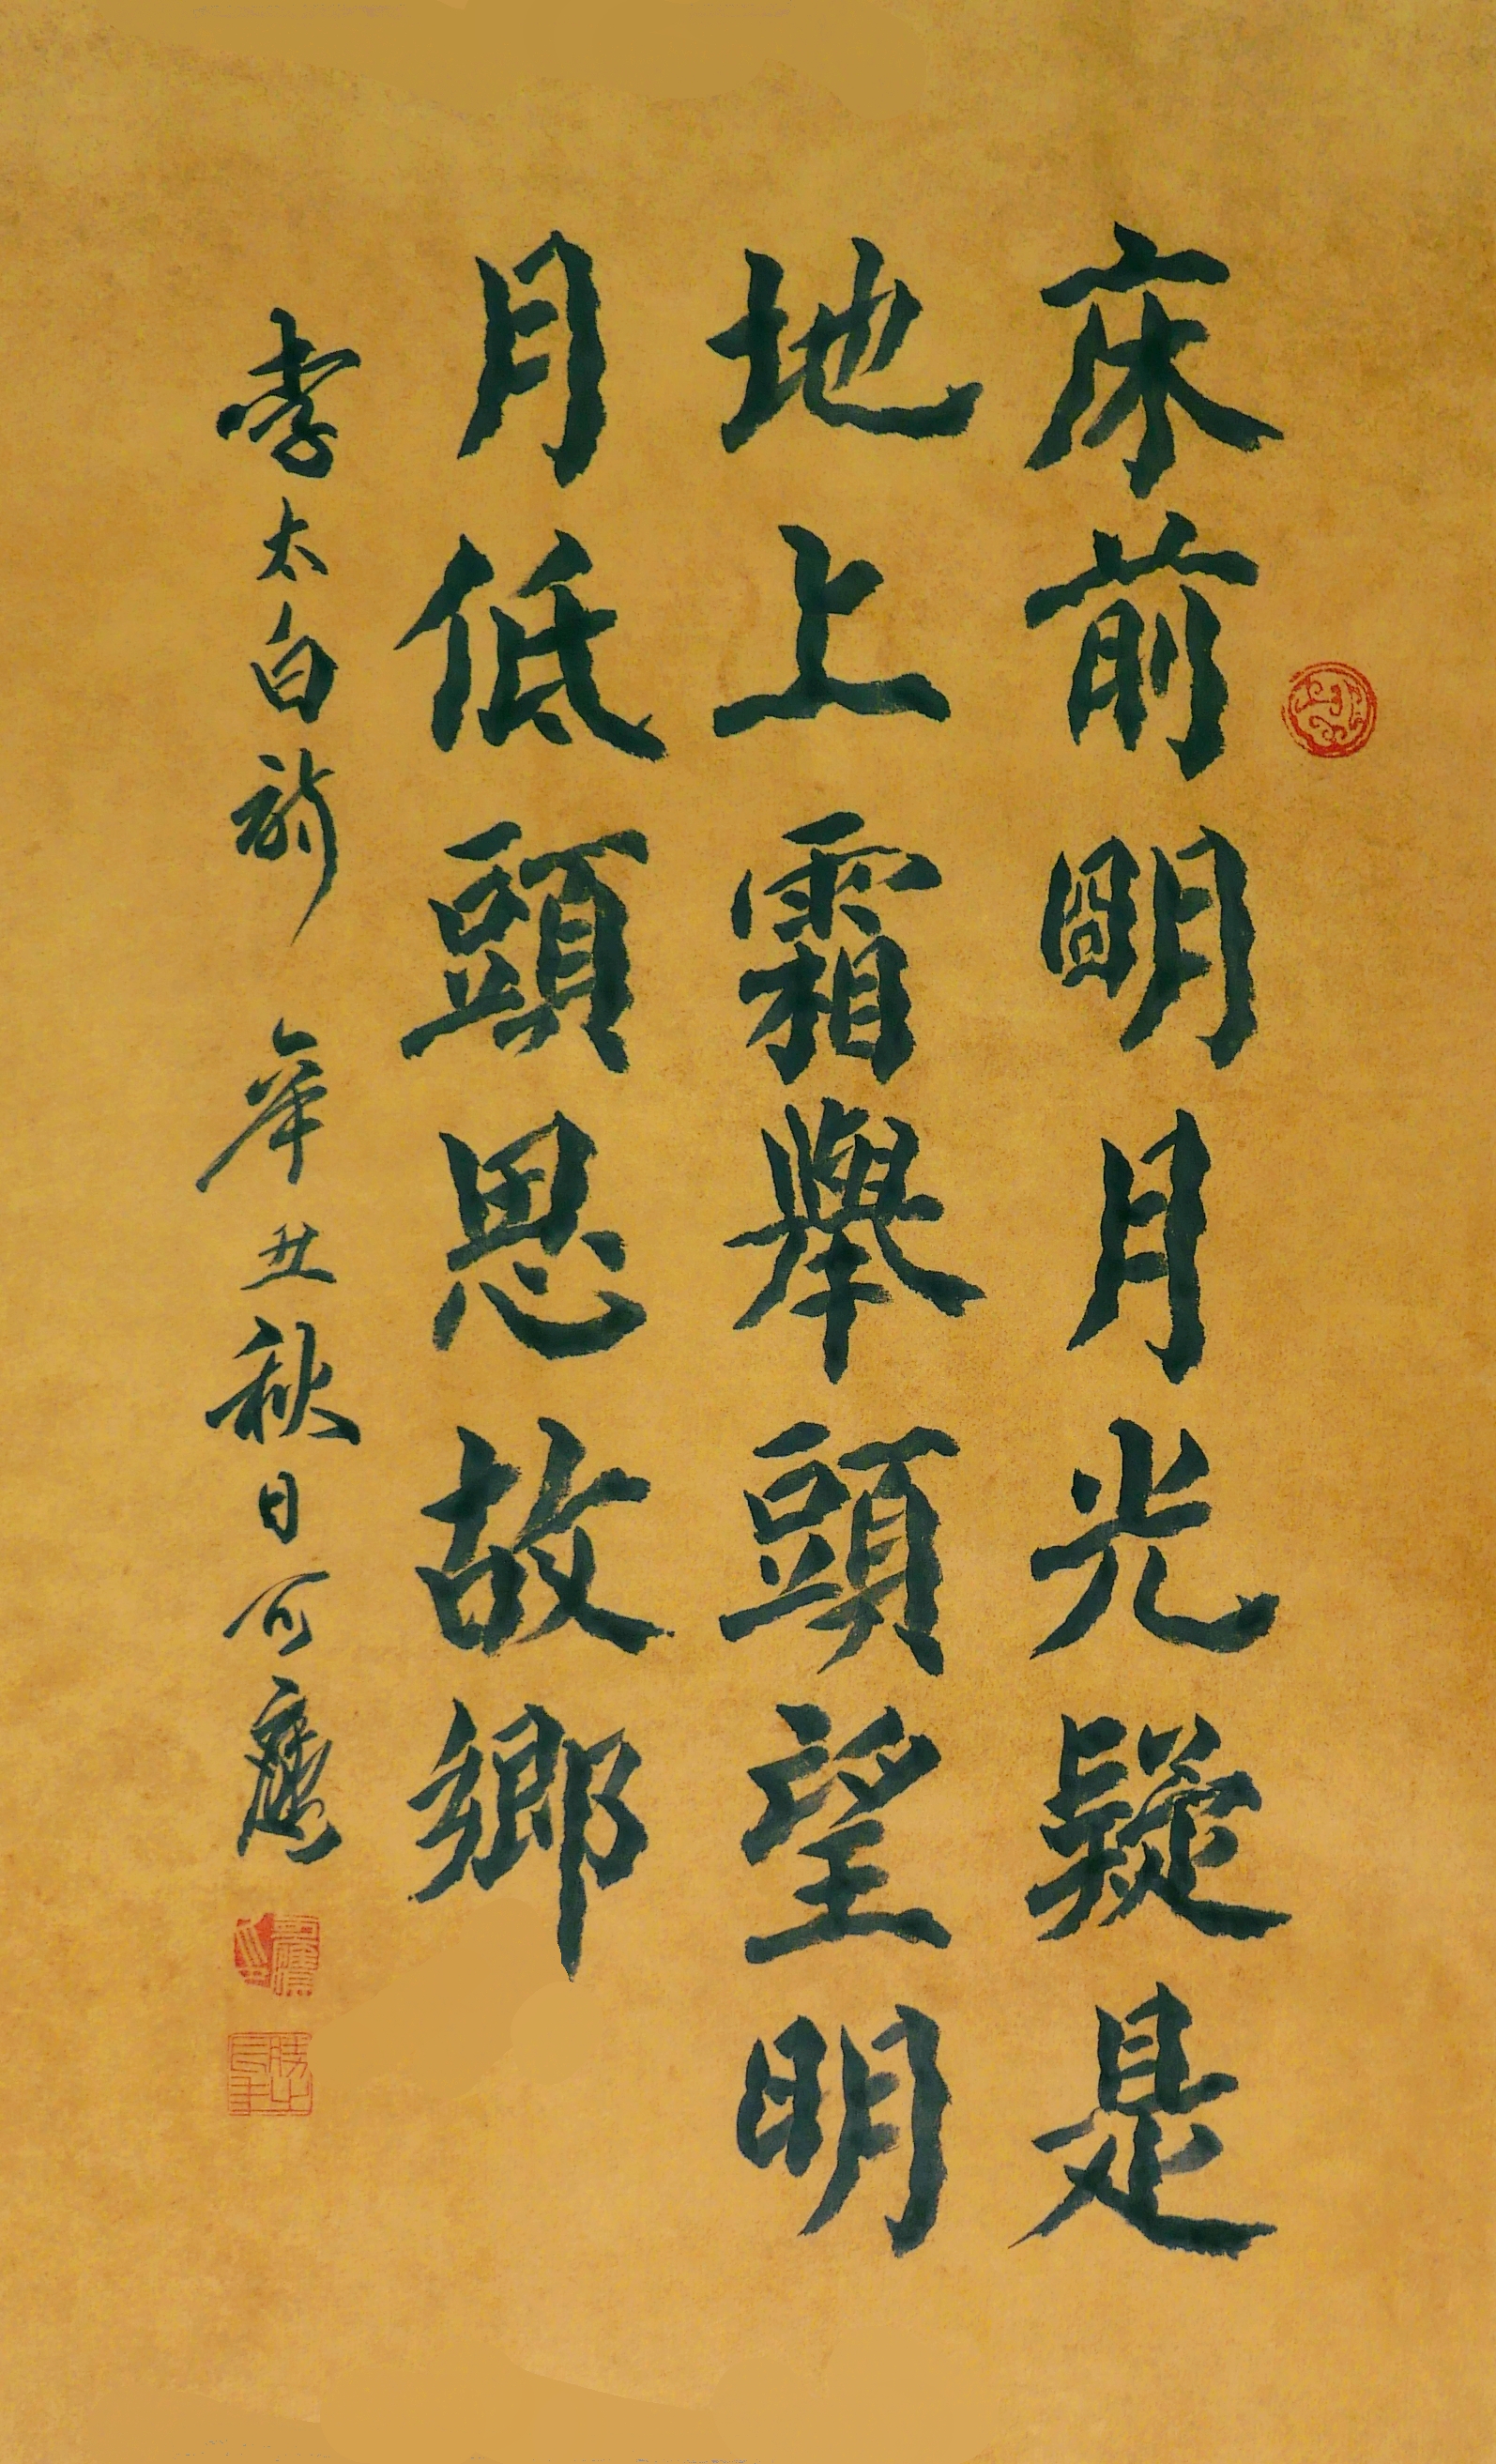 床前朙月光疑是
地上霜舉頭望明
月低頭思故鄉
李太白詩 辛丑秋日可